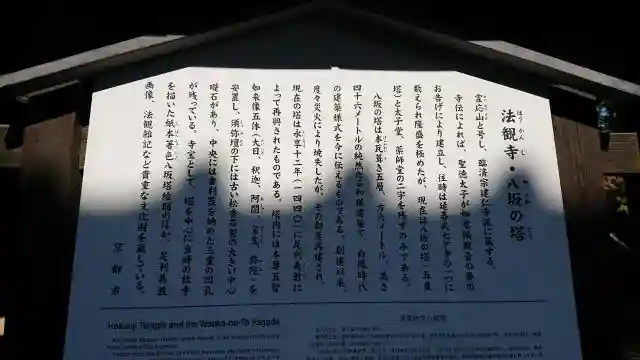 法観寺・八坂の塔
ほうかんじ
霊応山と号し、臨済宗建仁寺派に属する。
寺伝によれば、聖徳太子が如意輪観音の夢の
お告げにより建立し、往時は延喜式七か寺の一つに
数えられ隆盛を極めたが、現在は八坂の塔（五重
塔）と太子堂、薬師堂の二宇を残すのみである。
八坂の塔は本瓦葺き五層、方六メートル、高さ
四十六メートルの純然たる和様建築で、白鳳時代
の建築様式を今に伝えるものである。創建以来、
度々災火により焼失したが、その都度再建され、
現在の塔は永享十二年（一四四〇）に足利義教に
よって再興されたものである。塔内には本尊五智
如来像五体（大日、釈迦、阿閦、宝生、弥陀）を
安置し、須弥壇の下には古い松香石製の大きい中心
礎石があり、中央には舎利器を納めた三重の凹孔
が残っている。寺宝として、塔を中心に当時の社寺
を描いた紙本著色八坂塔絵図のほか、足利義教
画像、法観雑記など貴重な文化財を蔵している。
京都市
Hokanji Temple and the Yasaka-no-To Pagoda